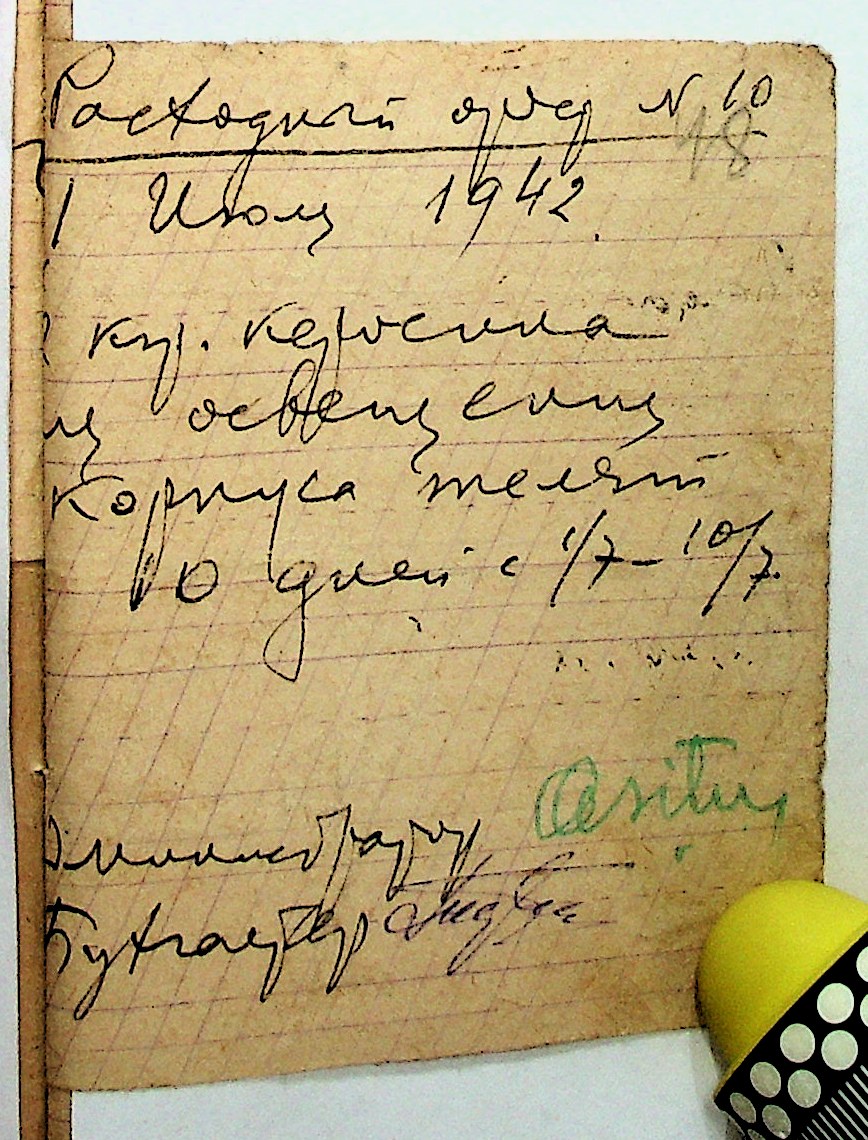 Расходный ордер N 10
48
1 Июля 1942.
кгр. керосина
для освещения
корпуса
10 дней с 1/7 – 10/7.
Администратор
Бухгалтер